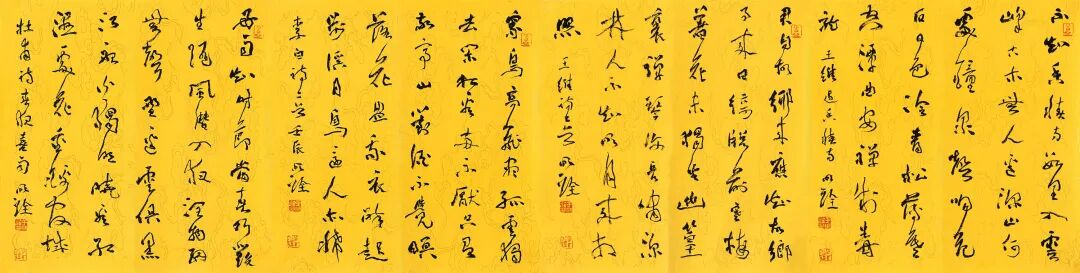 不知香積寺數里入雲
峰古木無人逕深山何
處鐘泉聲咽危
石日色冷青松薄暮
空潭曲安禪制毒
龍 王維過香積寺 明詮
君自故鄉來應知故鄉
事來日綺窗前寒梅
著花未獨坐幽篁
裏彈琴復長嘯深
林人不知明月來相
照 王維詩二首 明詮
眾鳥高飛盡孤雲獨
去閑相看兩不厭只有
敬亭山對酒不覺暝
落花盈我衣醉起
步溪月鳥還人亦稀
李白詩二首 壬辰 明詮
好雨知時節當春乃發
生隨風潛入夜潤物細
無聲野逕雲俱黑
江船火獨明曉看紅
濕處花重錦官城
杜甫詩春夜喜雨 明詮